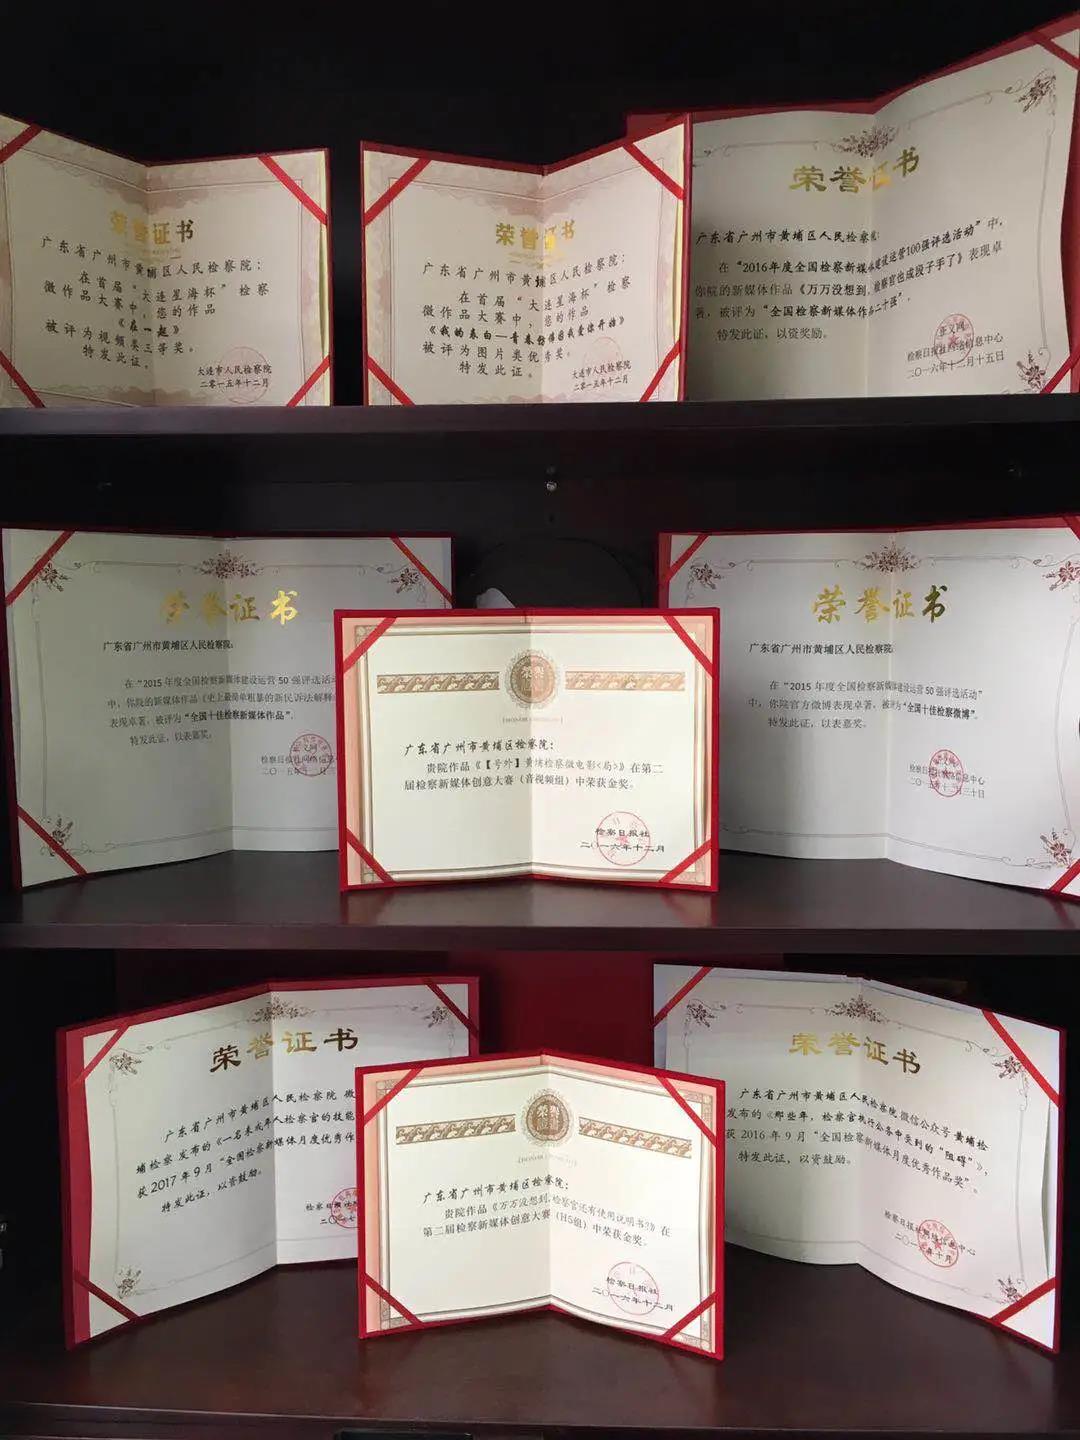 荣誉证书
广东省广州市黄埔区人民检察院：
在首届“大连星海杯”检察
微作品大赛中，您的作品
《在一起》
被评为视频类三等奖。
特发此证。
大连市人民检察院
二零一五年十二月
荣誉证书
广东省广州市黄埔区人民检察院：
在首届“大连星海杯”检察
微作品大赛中，您的作品
《我的表白—青春给伟因我爱你开始》
被评为图片类优秀奖。
特发此证。
大连市人民检察院
二零一五年十二月
荣誉证书
广东省广州市黄埔区人民检察院：
在“2016年度全国检察新媒体建设运营100强评选活动”中，
你院的新媒体作品《万万没想到，检察官也成段子手了》表现卓
著，被评为“全国检察新媒体作品二十强”。
特发此证，以资奖励。
正义网
检察日报社网络信息中心
二〇一六年十二月十五日
荣誉证书
广东省广州市黄埔区人民检察院：
在“2015年度全国检察新媒体建设运营50强评选活动
中，你院的新媒体作品《史上最简单粗暴的新民诉法解释
表现卓著，被评为“全国十佳检察新媒体作品”。
特发此证，以表嘉奖。
正义网
检察日报社网络信息
二〇一五年
荣誉证书
广东省广州市黄埔区检察院：
贵院作品《【号外】黄埔检察微电影<局>》在第二
届检察新媒体创意大赛（音视频组）中荣获金奖。
检察日报社
二〇一六年十二月
荣誉证书
广东省广州市黄埔区人民检察院：
在“2015年度全国检察新媒体建设运营50强评选活动”
中，你院官方微博表现卓著，被评为“全国十佳检察微博”。
特发此证，以表嘉奖。
正义网
检察日报社网络信息中心
二〇一五年十二月三十日
荣誉证书
广东省广州市黄埔区人民检察院 微
埔检察发布的《一名未成年人检察官的技能
获2017年9月“全国检察新媒体月度优秀作
特发此证，以资鼓励。
检察日报社
二〇一七
荣誉证书
广东省广州市黄埔区检察院：
贵院作品《万万没想到，检察官还有使用说明书？》在
第二届检察新媒体创意大赛（H5组）中荣获金奖。
检察日报社
二〇一六年十二月
荣誉证书
广东省广州市黄埔区人民检察院微信公众号黄埔检
发布的《那些年，检察官执行公务中受到的“阻碍”》，
获2016年9月“全国检察新媒体月度优秀作品奖”。
特发此证，以资鼓励。
检察日报社网络信息中心
二〇一六年十月